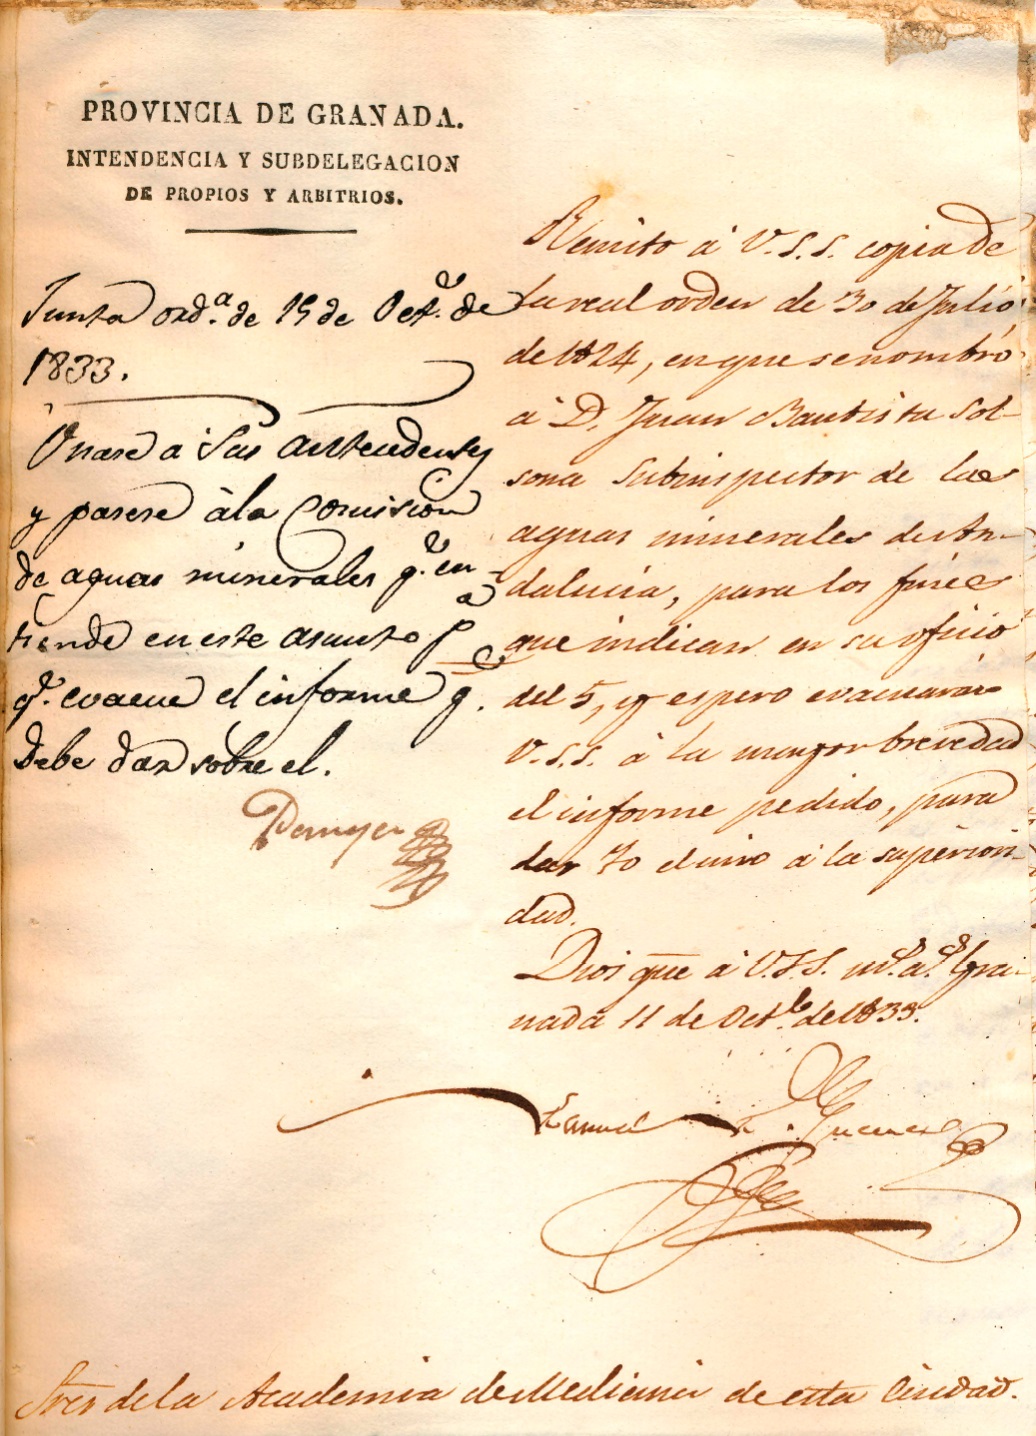 PROVINCIA DE GRANADA.
INTENDENCIA Y SUBDELEGACION
DE PROPIOS Y ARBITRIOS.
Junta ord.ª de 15 de Oct.e de
1833.
Unase a sus antecedentes
y pasese à la Comision
de aguas minerales q.e en-
tiende en este asunto p.a
q.e evacue el informe q.e
debe dar sobre el.
Remito à V.S.S. copia de
la real orden de 30 de Julio
de 1824, en que se nombró
à D. Juan Bautista Sol-
sona Subinspector de las
aguas minerales de An-
dalucia, para los fines
que indican en su oficio
del 5, y espero evacuarán
V.S.S. à la mayor brevedad
el informe pedido, para
dar yo el mio à la superiori-
dad.
Dios gue à V.S.S. m.s a.s Gra-
nada 11 de Oct.e de 1833.
Manuel
Sres de la Academia de Medicina de esta Ciudad.